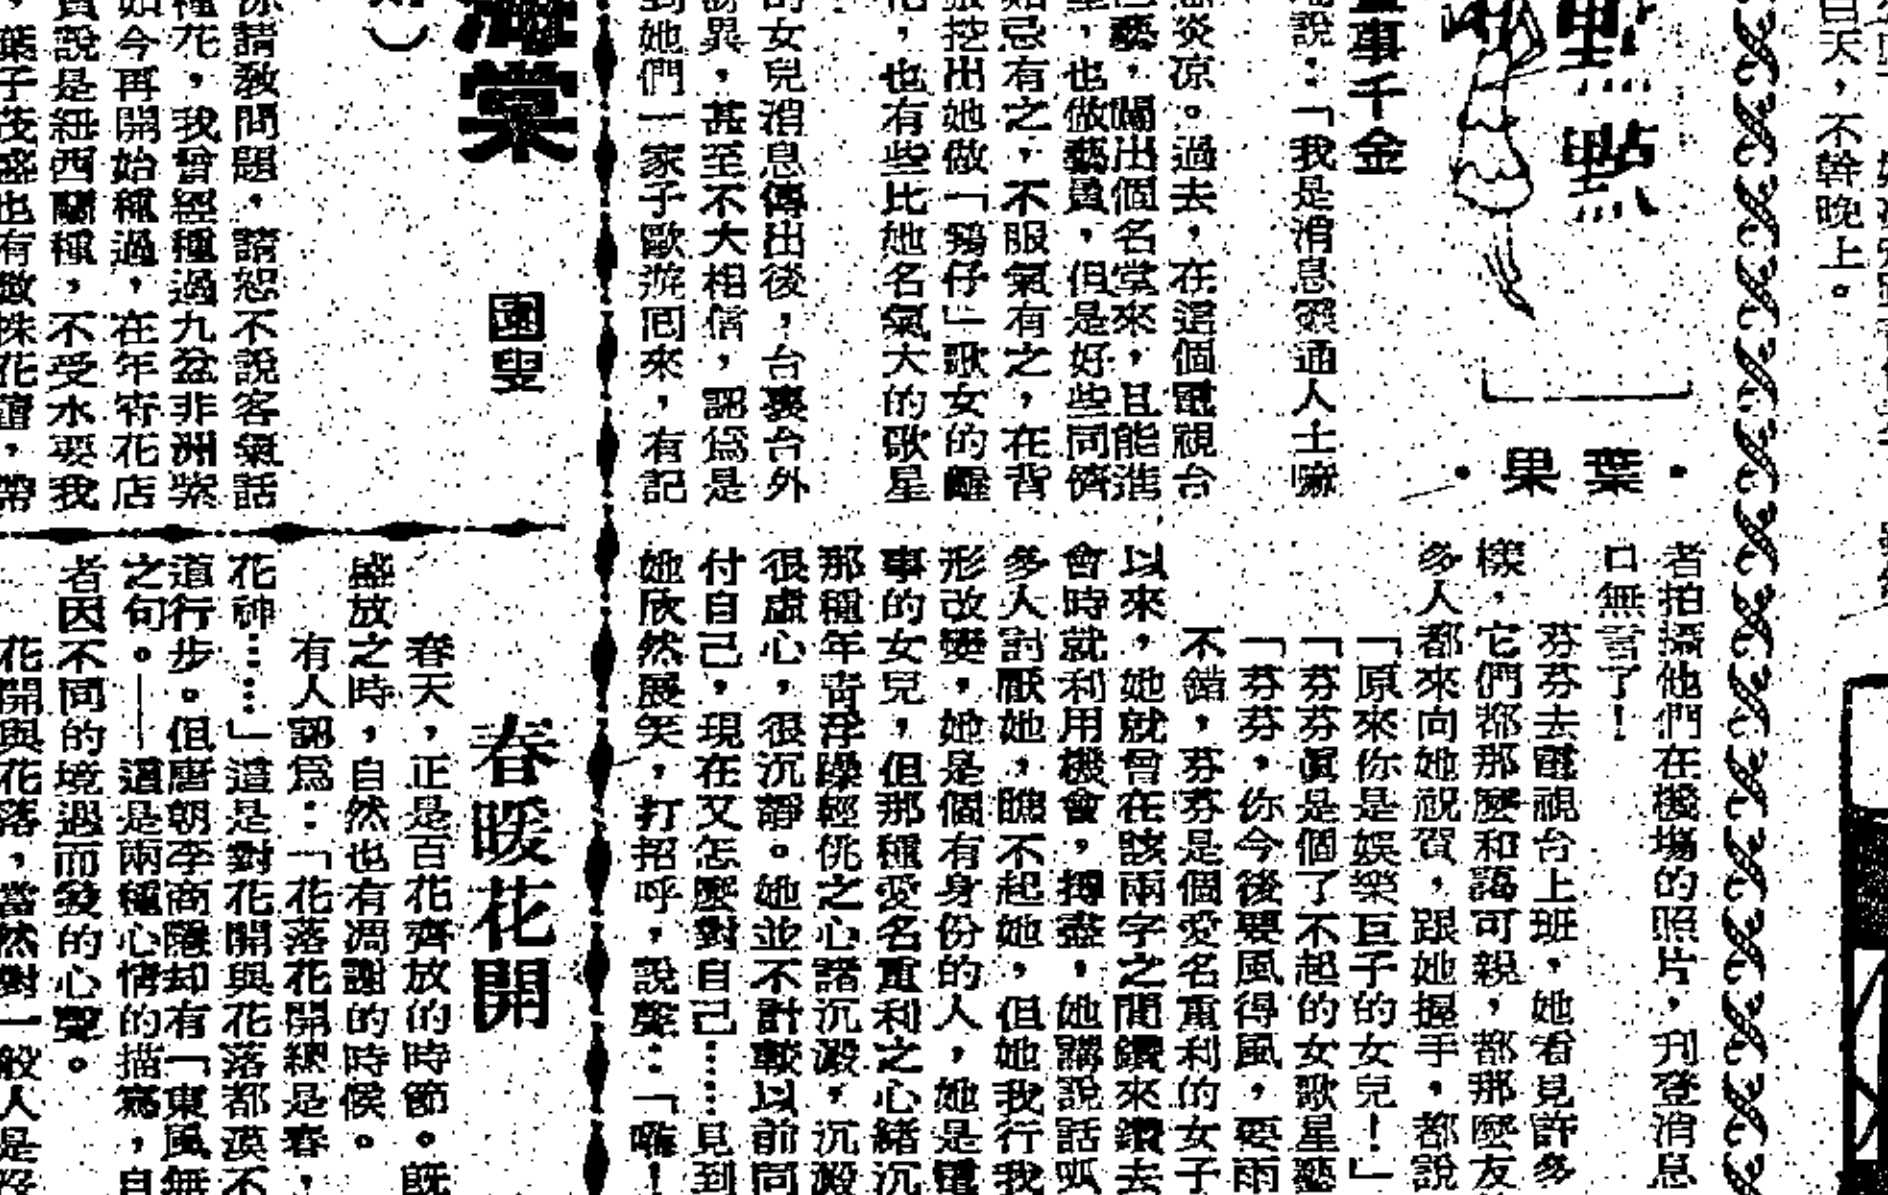 白天，不幹晚上。
點點
•葉果•
董事千金
說：「我是消息靈通人士嘛
炎涼。過去，在這個電視台
藝，闖出個名堂來，且能進
，也做藝員，但是好些同儕
忌有之，不服氣有之，在背
挖出她做「鷄仔」歌女的
，也有些比她名氣大的歌星
的女兒消息傳出後，台裏台外
異，甚至不大相信，認爲是
到她們一家子歐游回來，有記
者拍攝他們在機場的照片，刋登消息
口無言了！
芬芬去電視台上班，她看見許多
樣，它們都那麼和藹可親，都那麼友
多人都來向她祝賀，跟她握手，都說
「原來你是娛樂巨子的女兒！」
「芬芬眞是個了不起的女歌星藝
「芬芬，你今後要風得風，要雨
不錯，芬芬是個愛名重利的女子
以來，她就曾在該兩字之間鑽來鑽去
會時就利用機會，摶盡，她講說話
多人討厭她，瞧不起她，但她我行我
形改變，她是個有身份的人，她是電
事的女兒，但那種愛名重利之心緒沉
那種年靑浮躁輕佻之心諸沉澱，沉澱
很虛心，很沉靜。她並不計較以前同
付自己，現在又怎麼對自己……見到
她欣然展笑，打招呼，說聲：「嗨！
海棠
園叟
你請敎問題，請恕不說客氣話
種花，我曾經種過九盆非洲紫
如今再開始種過，在年宵花店
說是紐西蘭種，不受水要我
，葉子茂盛也有數株花蕾，帶
春暖花開
春天，正是百花齊放的時節。旣
盛放之時，自然也有凋謝的時候。
有人認爲：「花落花開總是春，
花神……」這是對花開與花落都漠不
道行步。但唐朝李商隱却有「東風無
之句。——這是兩種心情的描寫，自
者因不同的境遇而發的心聲。
花開與花落，當然對一般人是沒